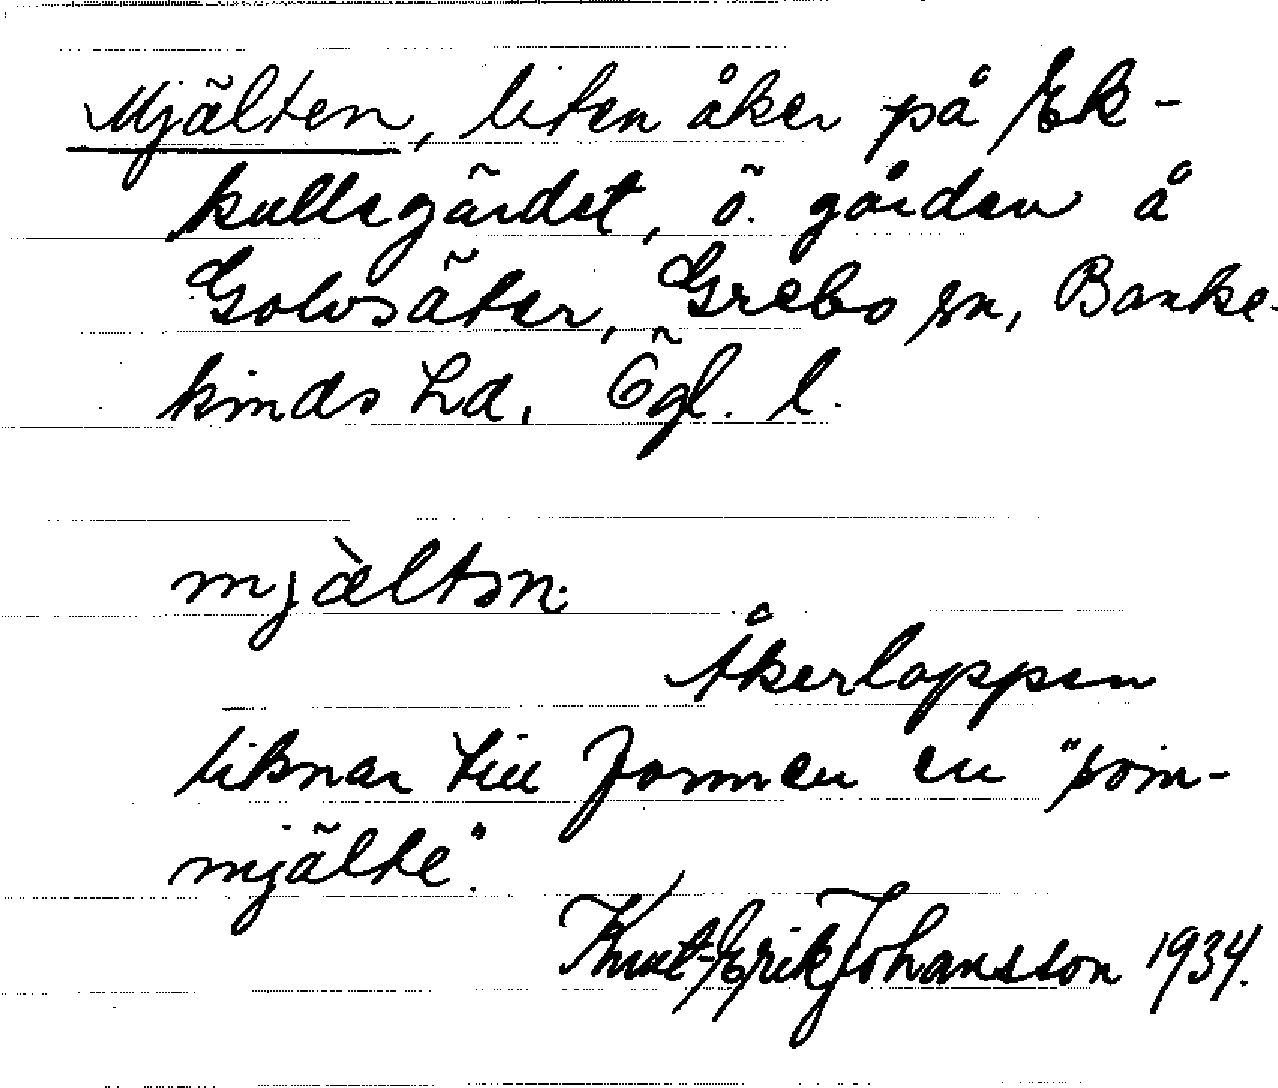 Mjälten, liten åker på Ek-
kullsgärdet, ö. gården å
Golvsäter, Grebo sn, Banke-
kinds hd, Ögl. l.
mjàltən.
Åkerlappen
liknar till formen en "som-
mjälte".
Knut-Erik Johansson 1934.